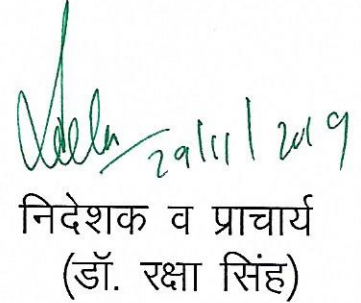 29/11/2019
निदेशक व प्राचार्य
(डॉ. रक्षा सिंह)